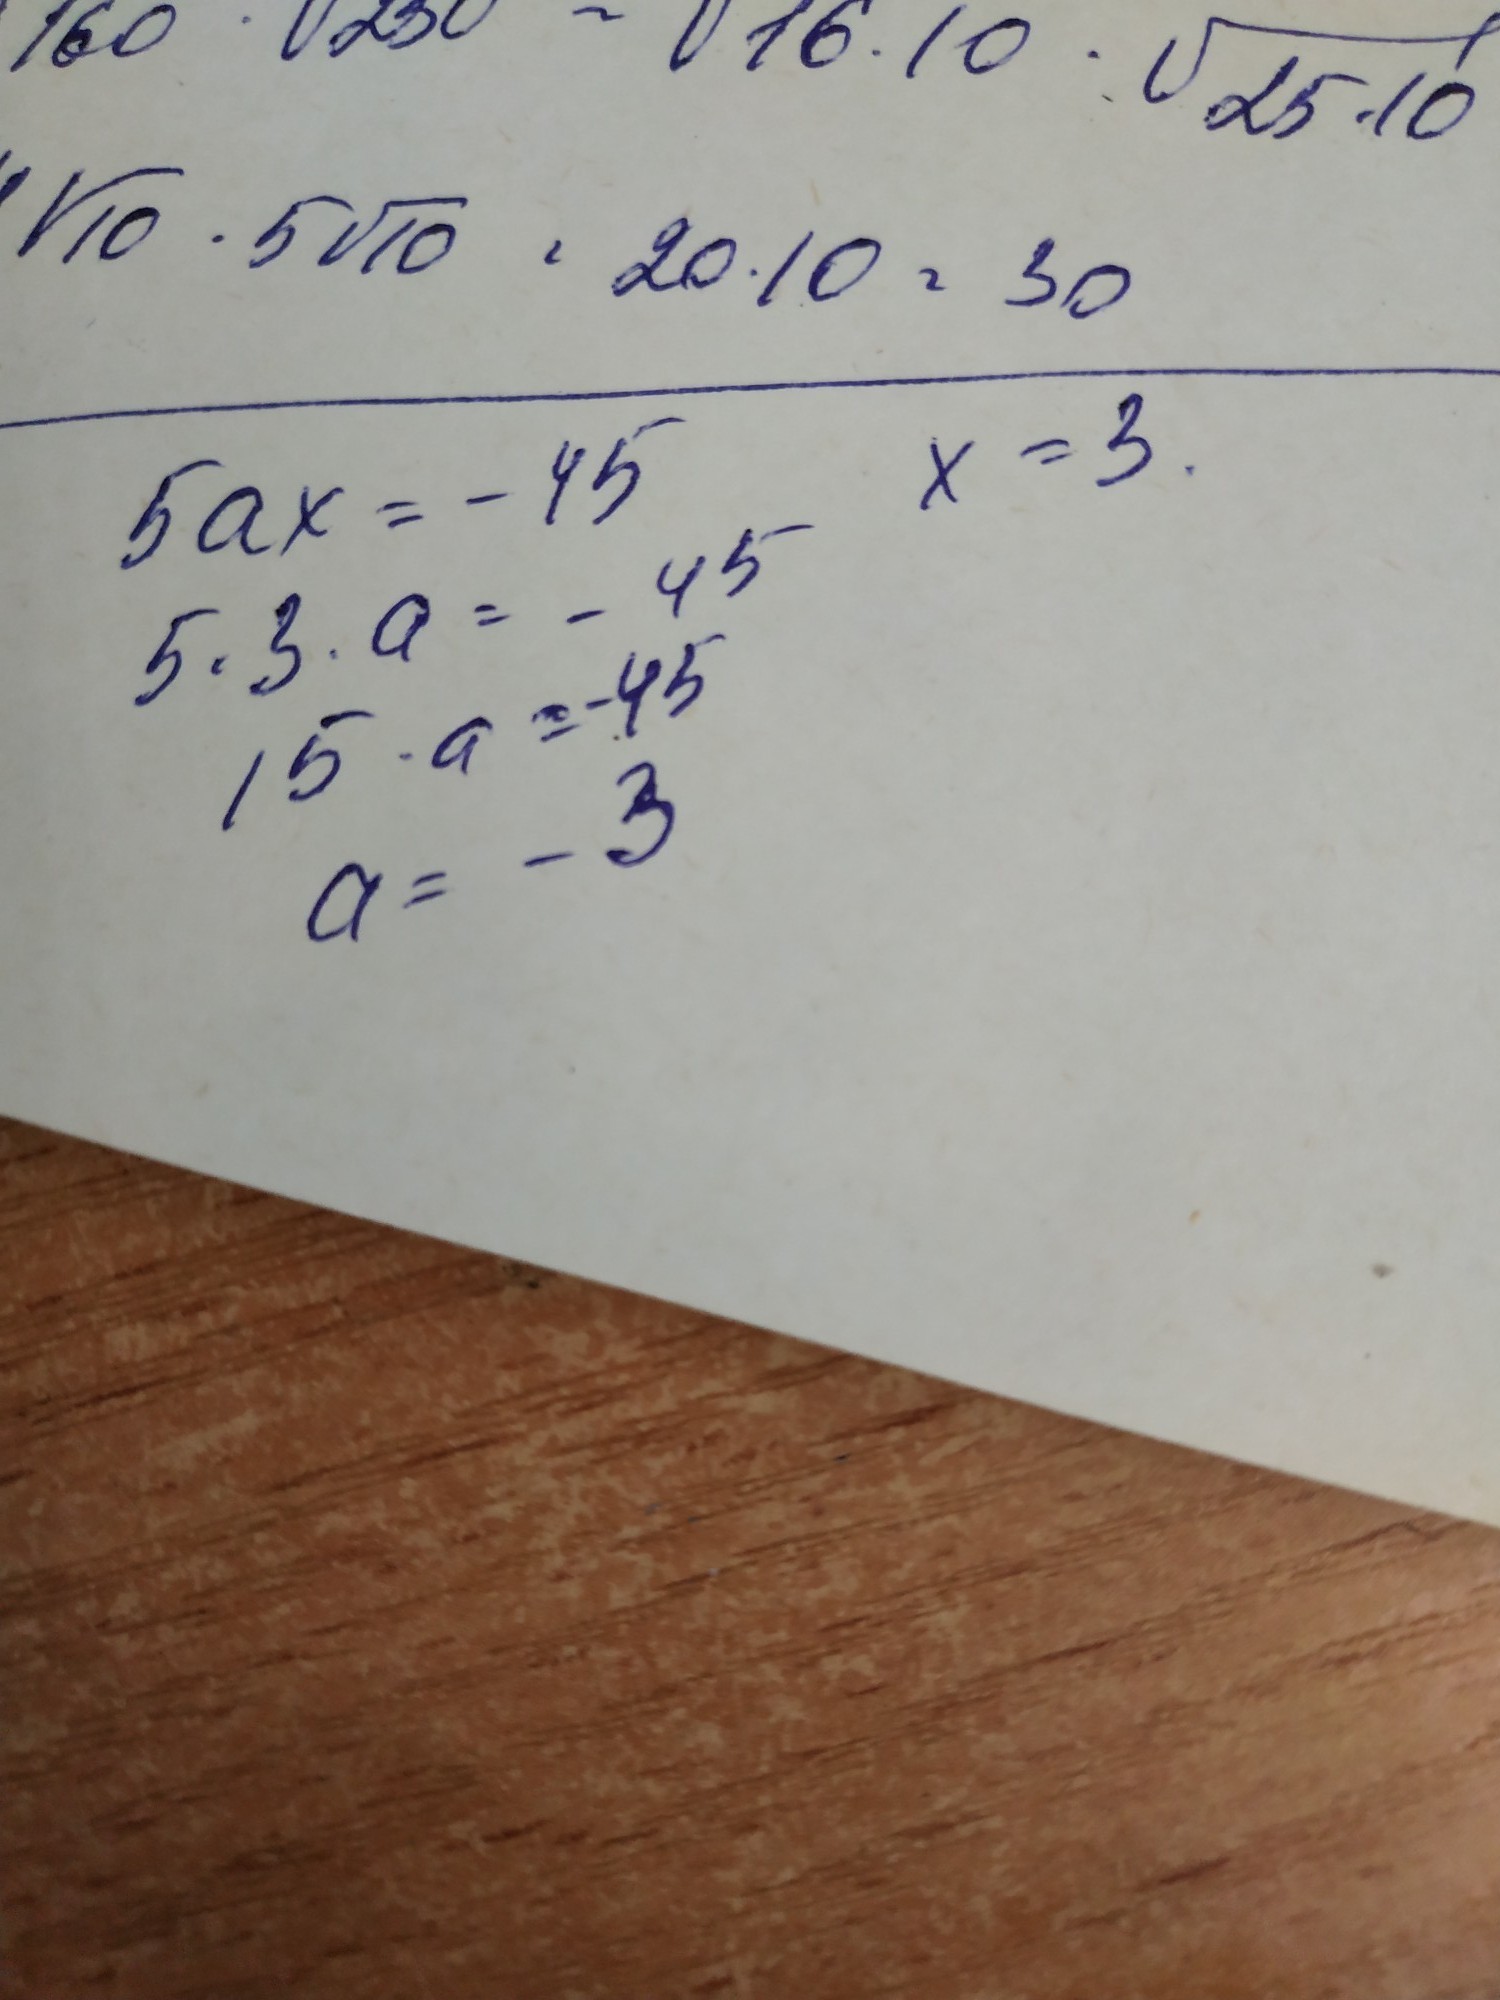 160 · √250 = √16·10 · √25·10
4√10 · 5√10 = 20·10 = 30
5ax = -45 x = 3.
5·3·a = -45
15·a = -45
a = -3